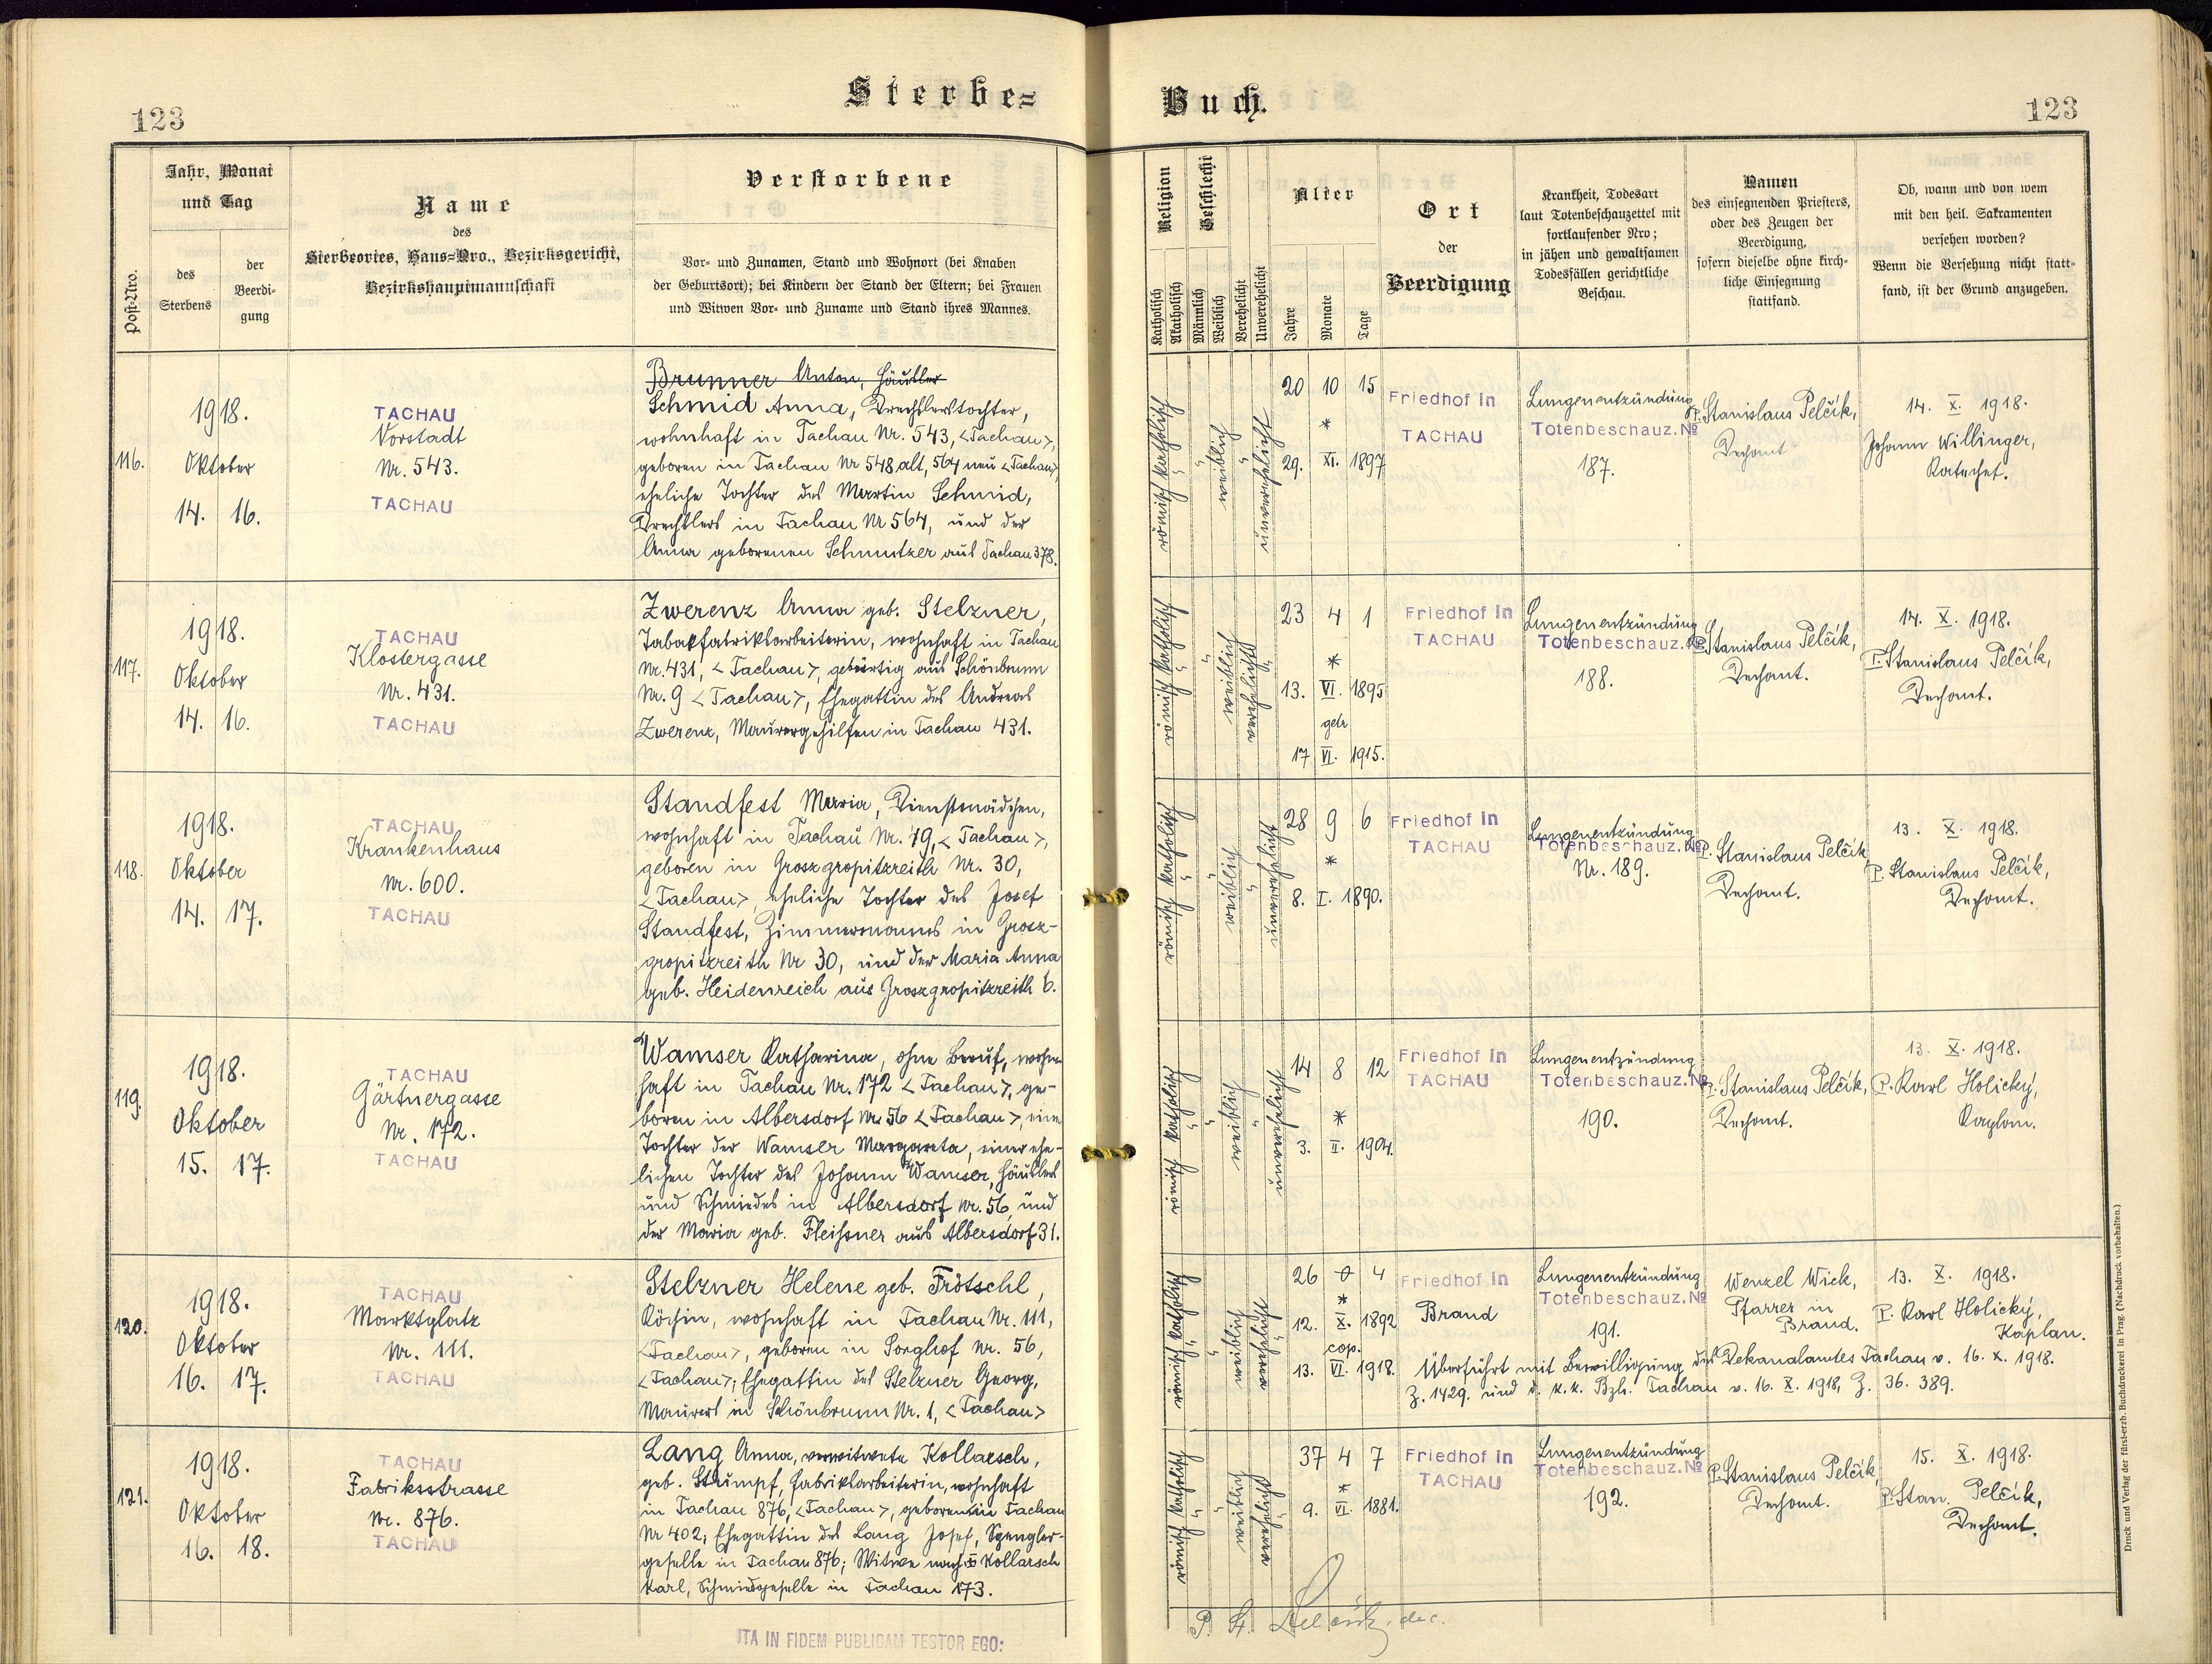 123
Sterbe=
Buch.
123
Post-Nro.
Jahr, Monat und Tag
des Sterbens
der Beerdi-gung
Name
des
Sterbeortes, Haus=Nro., Bezirksgericht,
Bezirkshauptmannschaft
Verstorbene
Vor- und Zunamen, Stand und Wohnort (bei Knaben
der Geburtsort); bei Kindern der Stand der Eltern; bei Frauen
und Witwen Vor- und Zuname und Stand ihres Mannes.
Religion
Katholisch
Akatholisch
Geschlecht
Männlich
Weiblich
Verehelicht
Unverehelicht
Alter
Jahre
Monate
Tage
Ort
der
Beerdigung
Krankheit, Todesart
laut Totenbeschauzettel mit
fortlaufender Nro;
in jähen und gewaltsamen
Todesfällen gerichtliche
Beschau.
Namen
des einsegnenden Priesters,
oder des Zeugen der
Beerdigung,
sofern dieselbe ohne kirch-
liche Einsegnung
stattfand.
Ob, wann und von wem
mit den heil. Sakramenten
versehen worden?
Wenn die Versehung nicht statt-
fand, ist der Grund anzugeben.
116.
1918.
Oktober
14. 16.
TACHAU
Vorstadt
Nr. 543.
TACHAU
Brunner Anton, Häusler
Schmid Anna, Drechslerstochter,
wohnhaft in Tachau Nr. 543, <Tachau>,
geboren in Tachau Nr 548 alt, 564 neu <Tachau>,
eheliche Tochter des Martin Schmid,
Drechslers in Tachau Nr 564, und der
Anna geborenen Schmutzer aus Tachau 378.
römisch katholisch
weiblich
unverehelicht
20 10 15
*
29. XI. 1897
Friedhof in
TACHAU
Lungenentzündung
Totenbeschauz. №
187.
P. Stanislaus Pelčík,
Dechant
14. X. 1918.
Johann Willinger,
Katechet.
117.
1918.
Oktober
14. 16.
TACHAU
Klostergasse
Nr. 431.
TACHAU
Zwerenz Anna geb. Stelzner,
Tabakfabriksarbeiterin, wohnhaft in Tachau
Nr. 431, <Tachau>, gebürtig aus Schönbrunn
Nr. 9 <Tachau>, Ehegattin des Andreas
Zwerenz, Maurergehilfen in Tachau 431.
römisch katholisch
weiblich
verehelicht
23 4 1
*
13. VI. 1895
getr
17 VI. 1915.
Friedhof in
TACHAU
Lungenentzündung
Totenbeschauz. №
188.
P. Stanislaus Pelčík,
Dechant.
14. X. 1918.
P. Stanislaus Pelčík,
Dechant.
118.
1918.
Oktober
14. 17.
TACHAU
Krankenhaus
Nr. 600.
TACHAU
Standfest Maria, Dienstmädchen,
wohnhaft in Tachau Nr. 49, <Tachau>,
geboren in Groszgropitzreith Nr. 30,
<Tachau>, eheliche Tochter des Josef
Standfest, Zimmermanns in Grosz-
gropitzreith Nr 30, und der Maria Anna
geb. Heidenreich aus Groszgropitzreith 6.
römisch katholisch
weiblich
unverehelicht
28 9 6
*
8. I. 1890.
Friedhof in
TACHAU
Lungenentzündung
Totenbeschauz. №
Nr. 189.
P. Stanislaus Pelčík
Dechant.
13. X. 1918.
P. Stanislaus Pelčík,
Dechant.
119.
1918.
Oktober
15. 17.
TACHAU
Gärtnergasse
Nr. 172.
TACHAU
Wamser Katharina, ohne Beruf, wohn-
haft in Tachau Nr. 172 <Tachau>, ge-
boren in Albersdorf Nr 56 <Tachau>, eine
Tochter der Wamser Margareta, einer ehe-
lichen Tochter des Johann Wamser, Häuslers
und Schmiedes in Albersdorf Nr. 56, und
der Maria geb. Fleißner aus Albersdorf 31.
römisch katholisch
weiblich
unverehelicht
14 8 12
*
3. II. 1904.
Friedhof in
TACHAU
Lungenentzündung
Totenbeschauz. №
190.
P. Stanislaus Pelčík,
Dechant.
13. X. 1918.
P. Karl Holický,
Kaplan.
120.
1918.
Oktober
16. 17.
TACHAU
Marktplatz
Nr. 111.
TACHAU
Stelzner Helene geb. Frötschl,
Köchin, wohnhaft in Tachau Nr. 111,
<Tachau>, geboren in Sorghof Nr. 56,
<Tachau>; Ehegattin des Stelzner Georg,
Maurers in Schönbrunn Nr. 1, <Tachau>
römisch katholisch
weiblich
verehelicht
26 0 4
*
12. X. 1892
cop.
13. VI. 1918.
Friedhof in
Brand
Lungenentzündung
Totenbeschauz. №
191.
Wenzel Wick,
Pfarrer in
Brand.
13. X. 1918.
P. Karl Holický,
Kaplan.
Überführt mit Bewilligung des Dekanalamtes Tachau v. 16. X. 1918.
Z. 1429. und d. k.k. Bzh. Tachau v. 16. X. 1918, Z. 36. 389.
121.
1918.
Oktober
16. 18.
TACHAU
Fabriksstrasse
Nr. 876.
TACHAU
Lang Anna, verwitwete Kollarsch,
geb. Stumpf, Fabriksarbeiterin, wohnhaft
in Tachau 876, <Tachau>, geboren in Tachau
Nr 402; Ehegattin des Lang Josef, Spengler-
geselle in Tachau 876; Witwe nach Kollarsch
Karl, Schmiedgeselle in Tachau 173.
römisch katholisch
weiblich
verehelicht
37 4 7
*
9. VI. 1881.
Friedhof in
TACHAU
Lungenentzündung
Totenbeschauz. №
192.
P. Stanislaus Pelčík,
Dechant.
15. X. 1918.
P. Stan. Pelčík,
Dechant.
ITA IN FIDEM PUBLICAM TESTOR EGO:
P. St. Pelčík, dec.
Druck und Verlag der fürst-erzb. Buchdruckerei in Prag. (Nachdruck vorbehalten.)